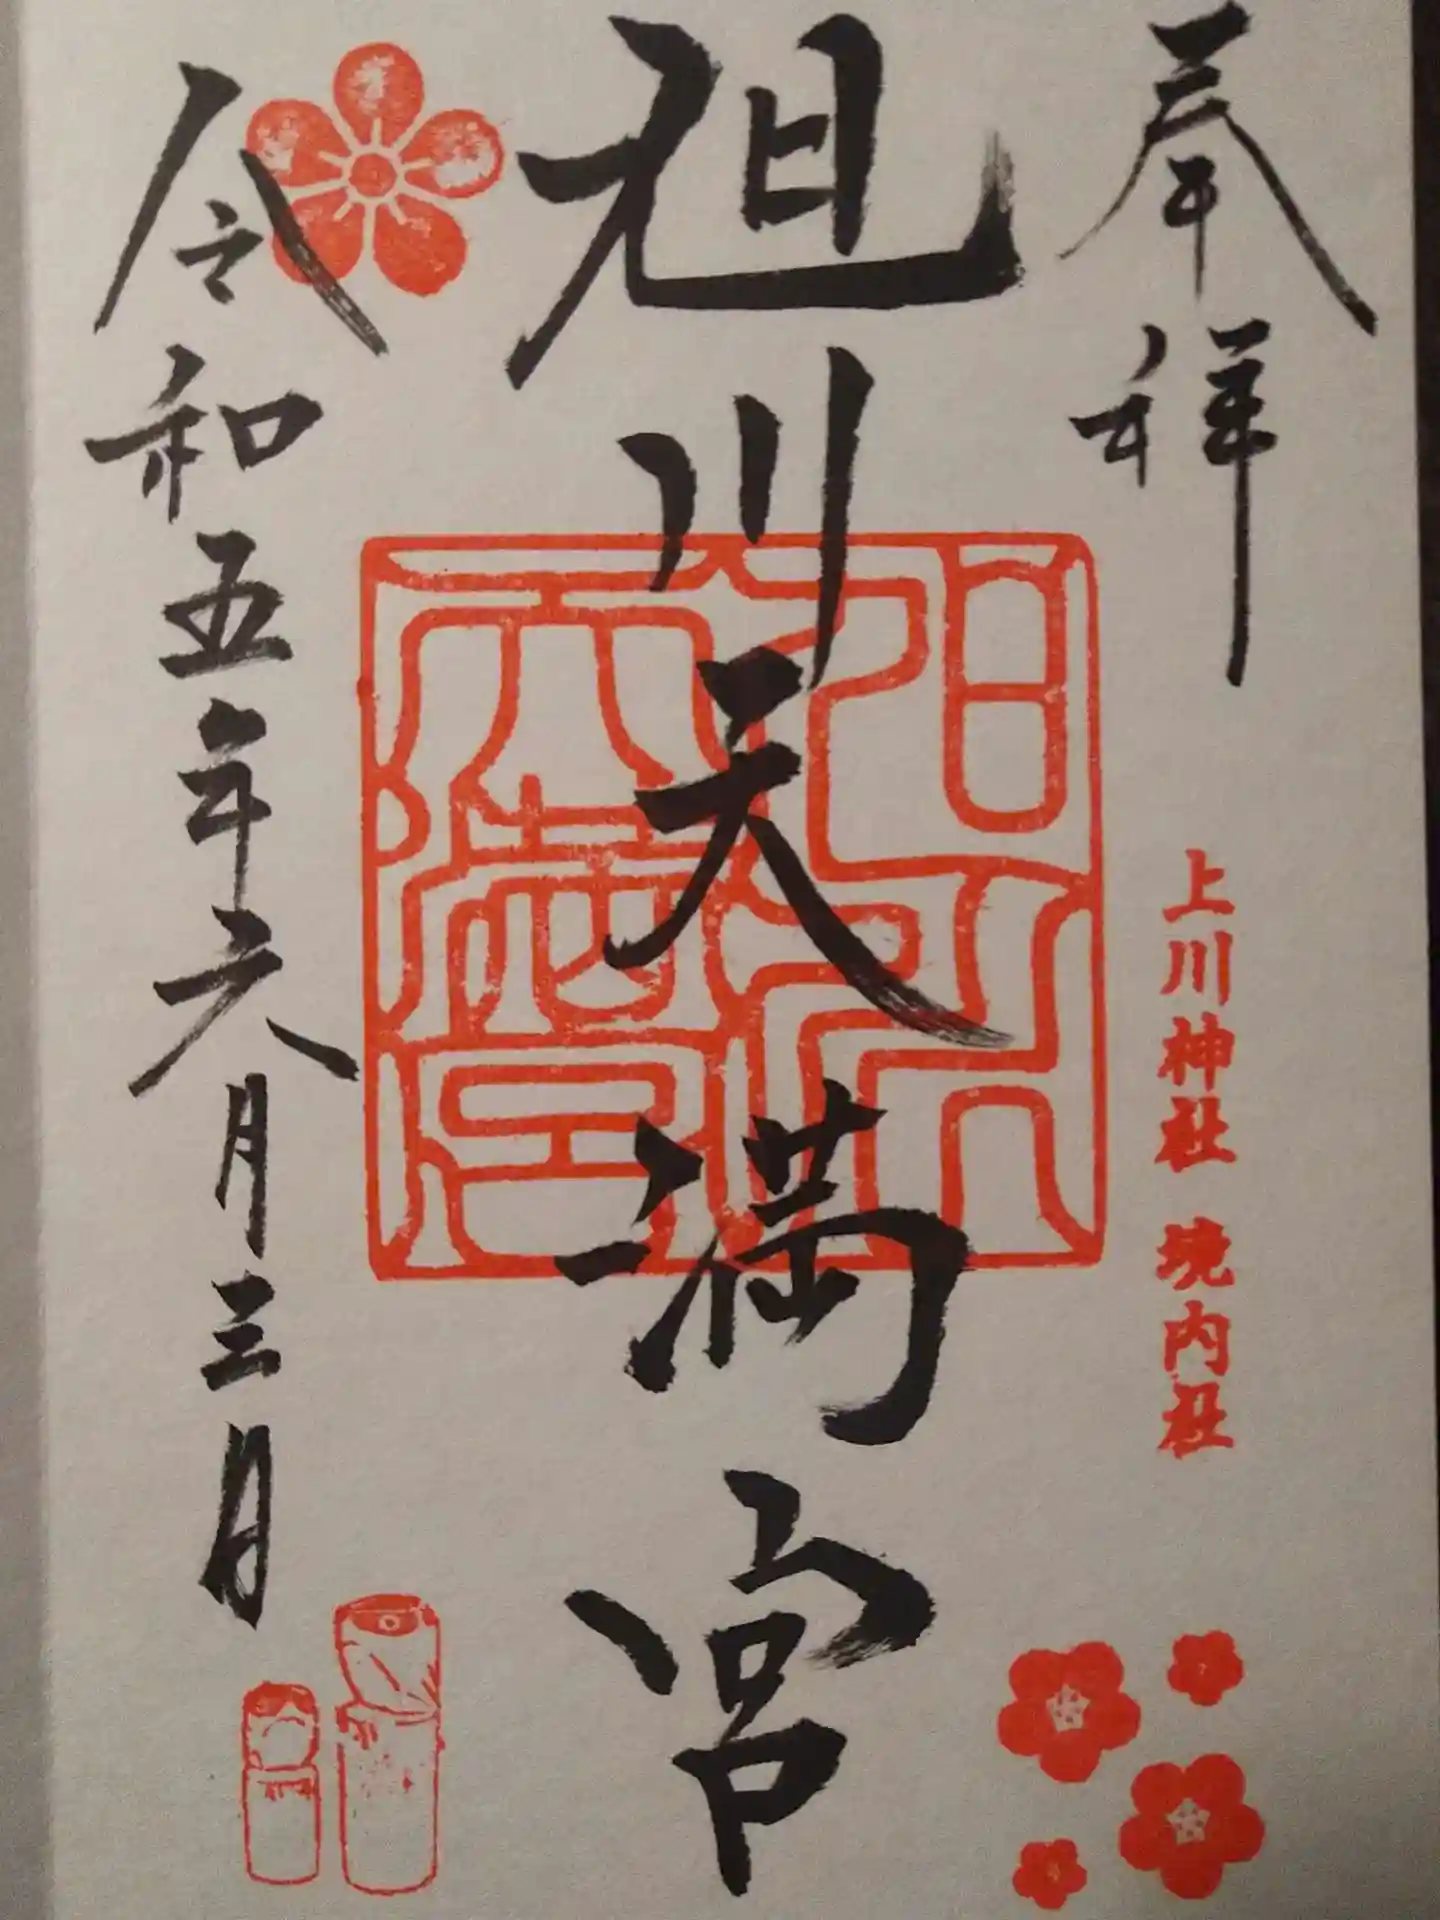 奉拝
上川神社 境内社
旭川天満宮
旭川天満宮
令和五年六月三日